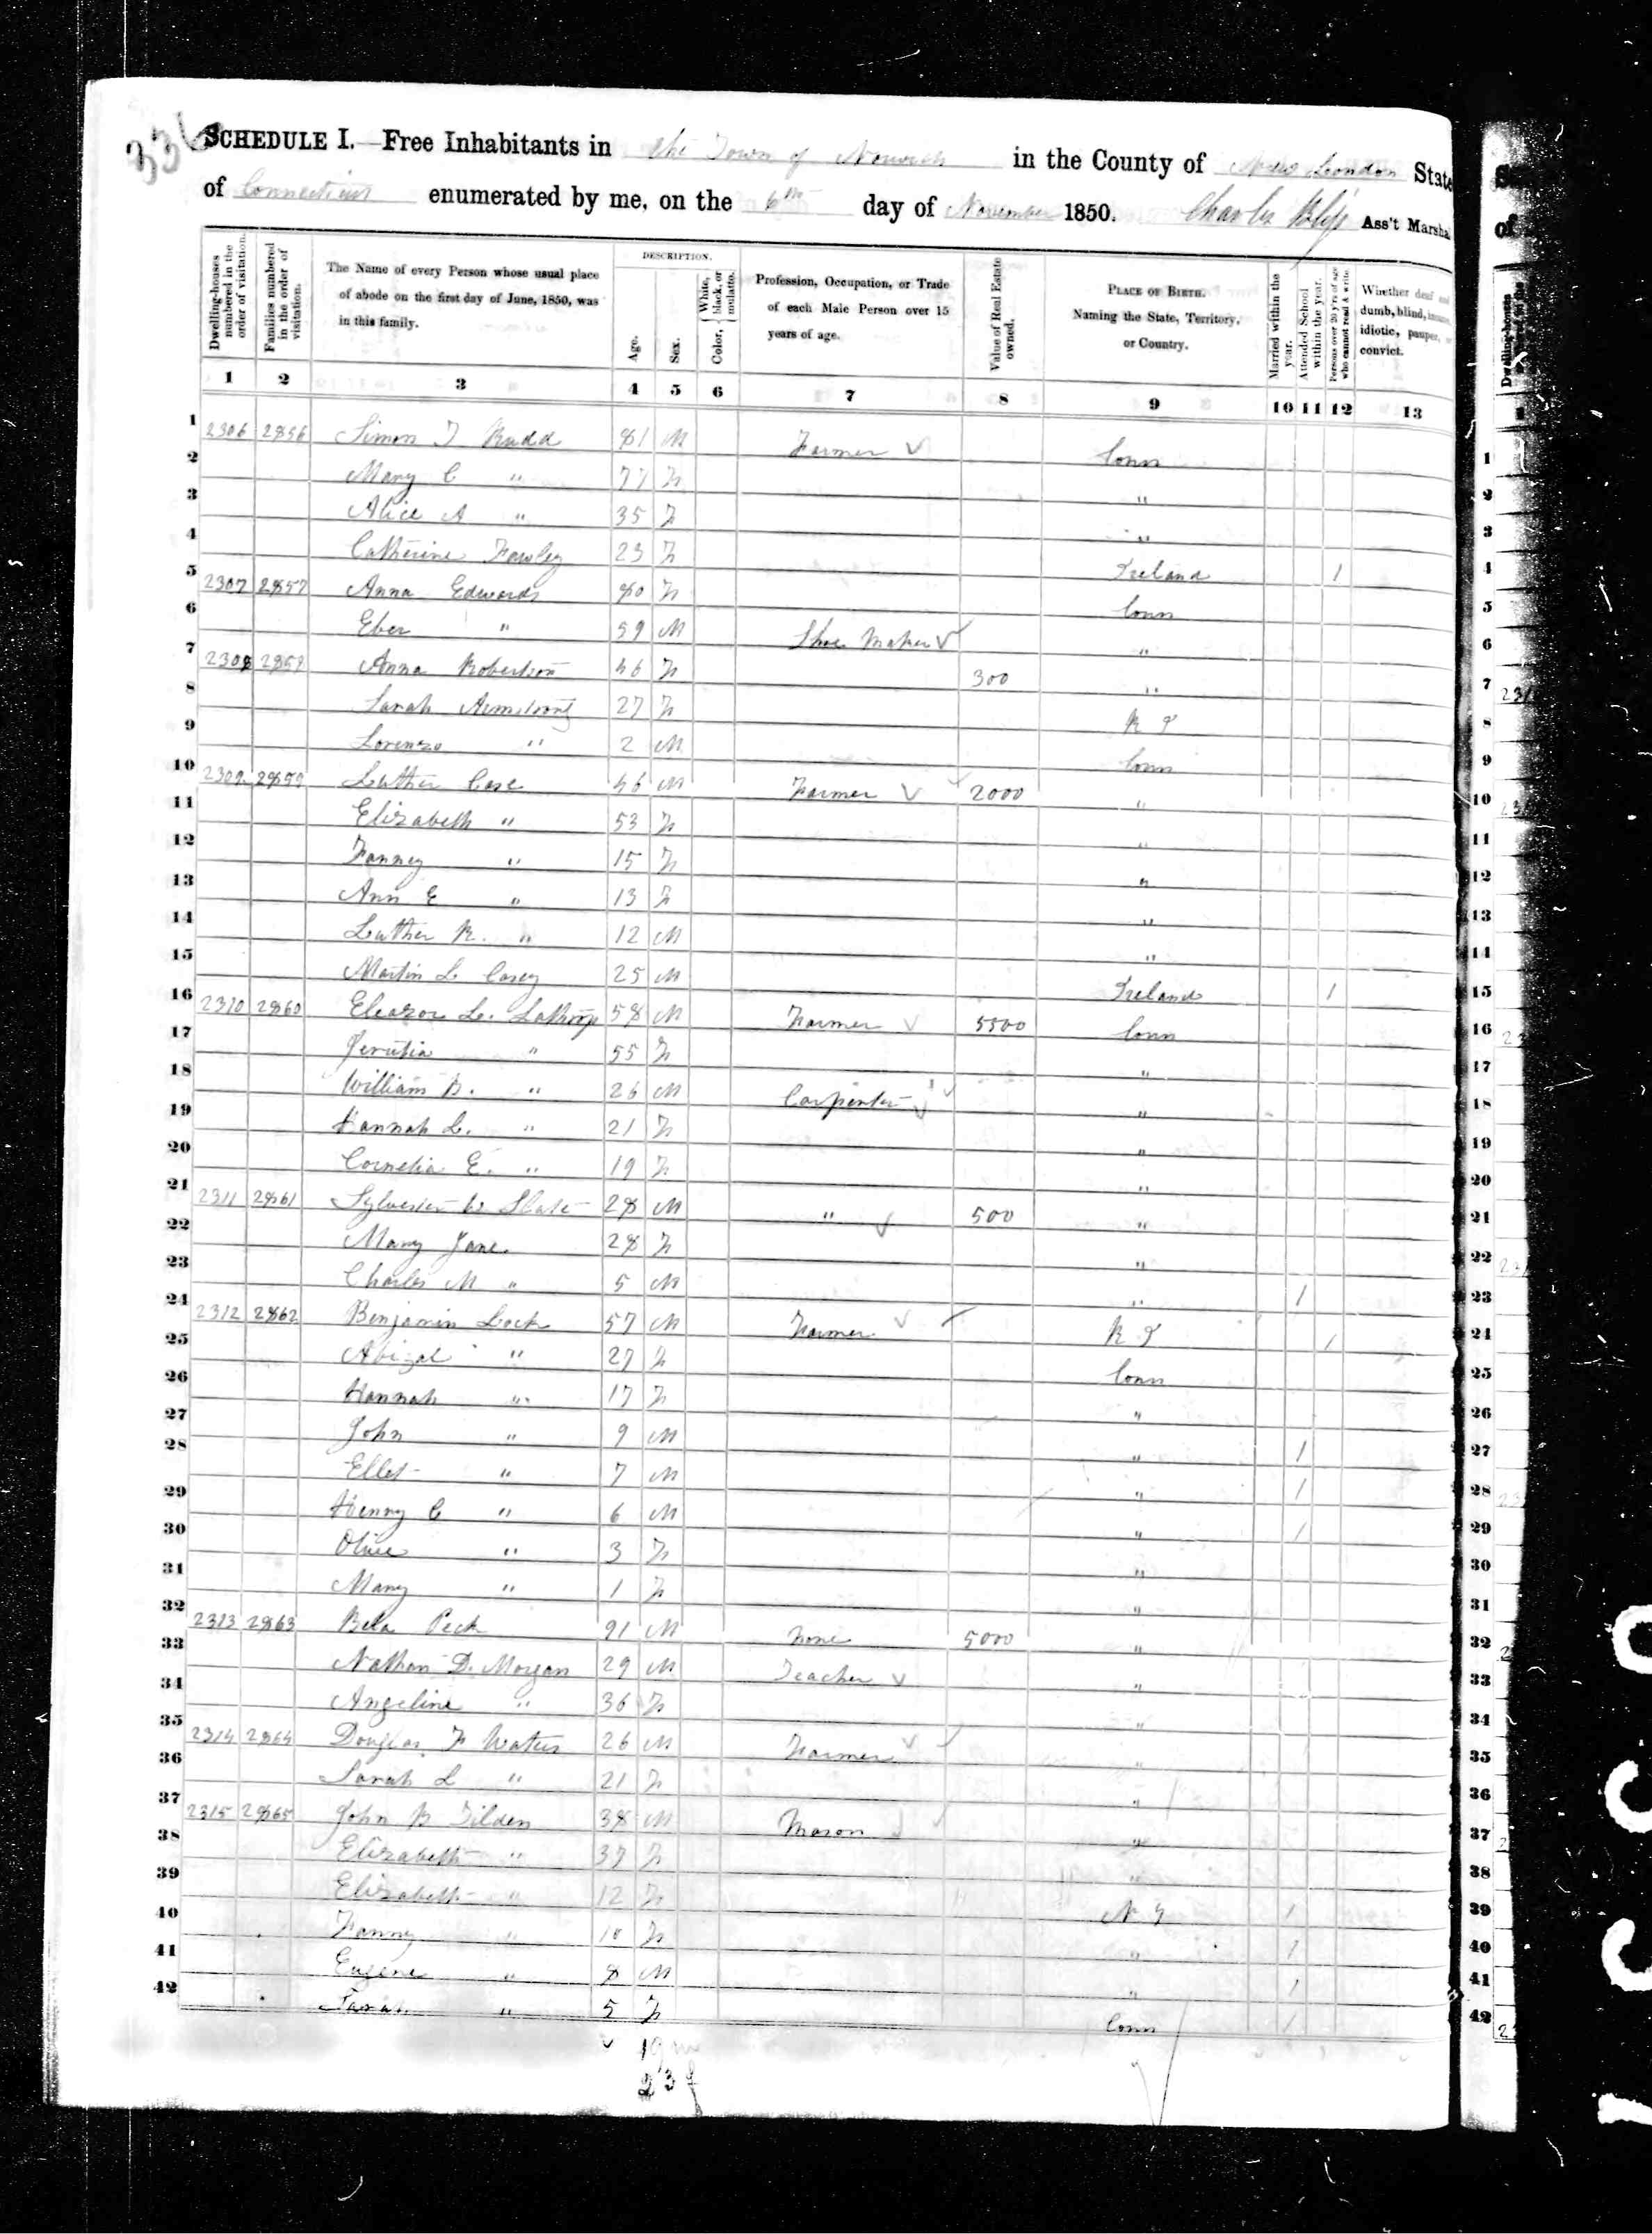 336
SCHEDULE I.—Free Inhabitants in the Town of Norwich in the County of New London State
of Connecticut enumerated by me, on the 6th day of November 1850. Charles Bliss Ass't Marshal
Dwelling-houses numbered in the order of visitation. Families numbered in the order of visitation. The Name of every Person whose usual place of abode on the first day of June, 1850, was in this family. DESCRIPTION. Age. Sex. Color, { White, black, or mulatto. Profession, Occupation, or Trade of each Male Person over 15 years of age. Value of Real Estate owned. PLACE OF BIRTH. Naming the State, Territory, or Country. Married within the year. Attended School within the year. Persons over 20 y'rs of age who cannot read & write. Whether deaf and dumb, blind, insane, idiotic, pauper, or convict.
1 2 3 4 5 6 7 8 9 10 11 12 13
1 2306 2856 Simon T Rudd 81 M Farmer Conn 1
2 Mary C " 77 F " 2
3 Alice A " 35 F " 3
4 Catherine 23 F Ireland 1 4
5 2307 2857 Anna Edwards 80 F Conn 5
6 Eber " 59 M Shoe Maker " 6
7 2308 2858 Anna Robertson 46 F 300 " 7
8 Sarah Armstrong 27 F R I 8
9 Lorenzo " 2 M Conn 9
10 2309 2859 Luther Case 46 M Farmer 2000 " 10
11 Elizabeth " 53 F " 11
12 Fanney " 15 F " 12
13 Ann E " 13 F " 13
14 Luther R. " 12 M " 14
15 Martin L. Casey 25 M Ireland 1 15
16 2310 2860 Eleazor L. Lathrop 58 M Farmer 5500 Conn 16
17 Jerutia " 55 F " 17
18 William B. " 26 M Carpenter " 18
19 Hannah L. " 21 F " 19
20 Cornelia E. " 19 F " 20
21 2311 2861 Sylvester W Slate 28 M " 500 " 21
22 Mary Jane 28 F " 22
23 Charles M " 5 M " 1 23
24 2312 2862 Benjamin Lock 57 M Farmer R I 1 24
25 Abigal " 27 F Conn 25
26 Hannah " 17 F " 26
27 John " 9 M " 1 27
28 Ellet " 7 M " 1 28
29 Henry C " 6 M " 1 29
30 Olive " 3 F " 30
31 Mary " 1 F " 31
32 2313 2863 Bela Peck 91 M None 5000 " 32
33 Nathan D. Morgan 29 M Teacher " 33
34 Angeline " 36 F " 34
35 2314 2864 Douglas F Waters 26 M Farmer " 35
36 Sarah L " 21 F " 36
37 2315 2865 John B Tilden 38 M Mason " 37
38 Elizabeth " 37 F " 38
39 Elizabeth " 12 F N Y 1 39
40 Fanny " 10 F " 1 40
41 Eugene " 8 M " 1 41
42 Sarah " 5 F Conn 1 42
19 m
23 f